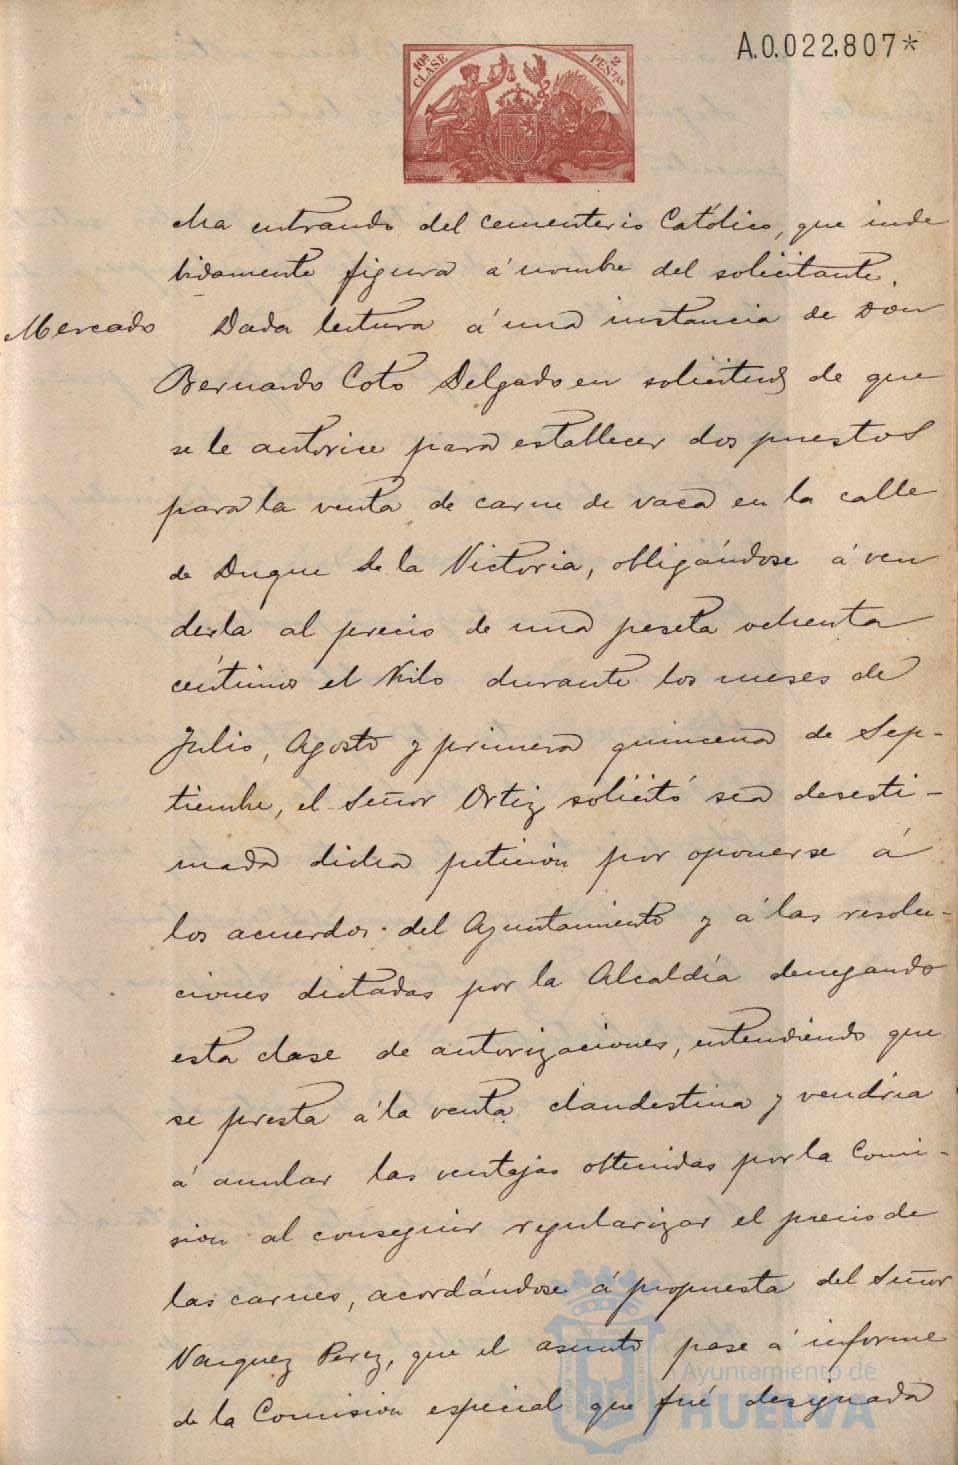 A.0.022.807*
10ª CLASE 2 PENTAS
cha entrando del cementerio Católico, que inde
bidamente figura á nombre del solicitante.
Mercado Dada lectura á una instancia de Don
Bernardo Coto Delgado en solicitud de que
se le autorice para establecer dos puestos
para la venta de carne de vaca en la calle
de Duque de la Victoria, obligándose á ven
derla al precio de una peseta ochenta
céntimos el Kilo durante los meses de
Julio, Agosto y primera quincena de Sep-
tiembre, el Señor Ortiz solicitó sea desesti-
mada dicha petición por oponerse á
los acuerdos del Ayuntamiento y á las resolu-
ciones dictadas por la Alcaldía denegando
esta clase de autorizaciones, entendiendo que
se presta á la venta clandestina y vendria
á anular las ventajas obtenidas por la Comi-
sion al conseguir regularizar el precio de
las carnes, acordándose á propuesta del Señor
Vazquez Perez, que el asunto pase á informe
de la Comision especial que fué designada
Ayuntamiento de
HUELVA